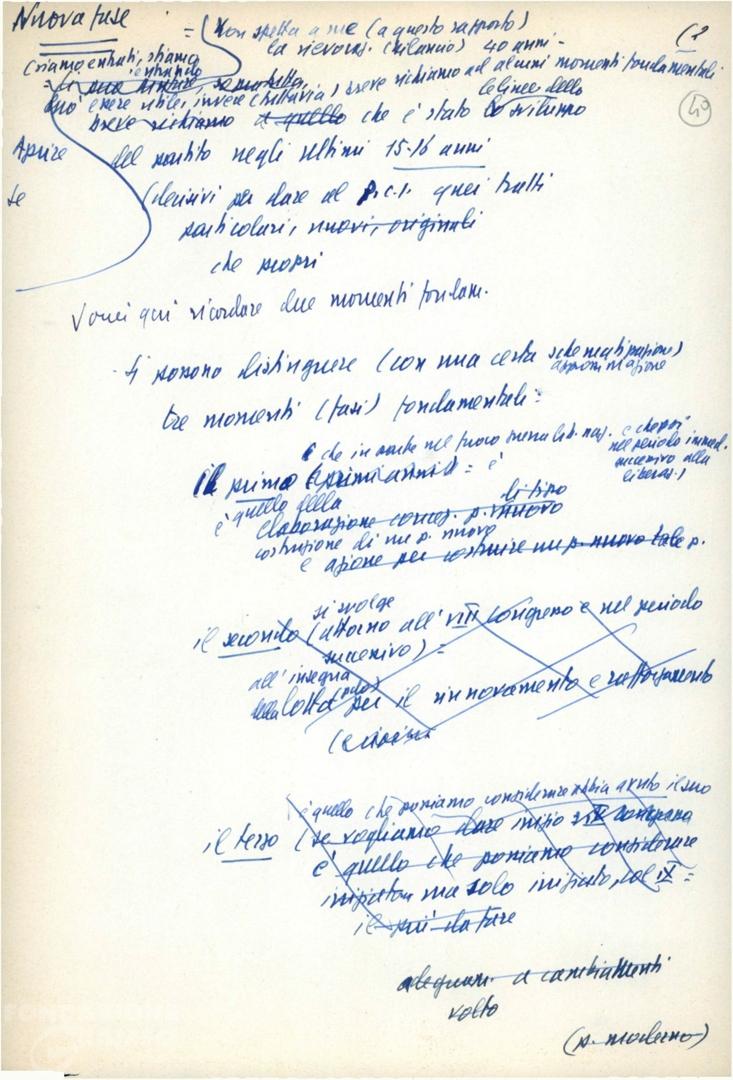 Nuova fase
= Non spetta a me (a questo rapporto)
la rievocaz. (bilancio) 40 anni -
(siamo entrati, stiamo
entrando
può essere utile, invece (tuttavia) breve richiamo ad alcuni momenti fondamentali
breve richiamo a quello che è stato lo sviluppo
le linee dello
Aprire
del partito negli ultimi 15-16 anni
se
(decisivi per dare al P.C.I. quei tratti
particolari, nuovi, originali
che propri
Vorrei qui ricordare due momenti fondam.
Si possono distinguere (con una certa schematizzazione)
approssimazione
tre momenti (fasi) fondamentali:
che in parte nel fuoco guerra lib. naz. e che poi
nel periodo immed.
successivo alla
liberaz.)
il primo (primi anni) = è
è quello della
di tipo
elaborazione concez. p. nuovo
costruzione di un p. nuovo
e azione per costruire un p. nuovo tale p.
si svolge
il secondo (attorno all'VIII Congresso e nel periodo
successivo) =
all'insegna
della lotta per il rinnovamento e rafforzamento
(e
è quello che possiamo considerare abbia avuto il suo
il terzo (se vogliamo dare inizio
è quello che possiamo considerare
iniziato ma solo iniziato, col IX =
il più da fare
adeguarsi a cambiamenti
volto
(p. moderno)